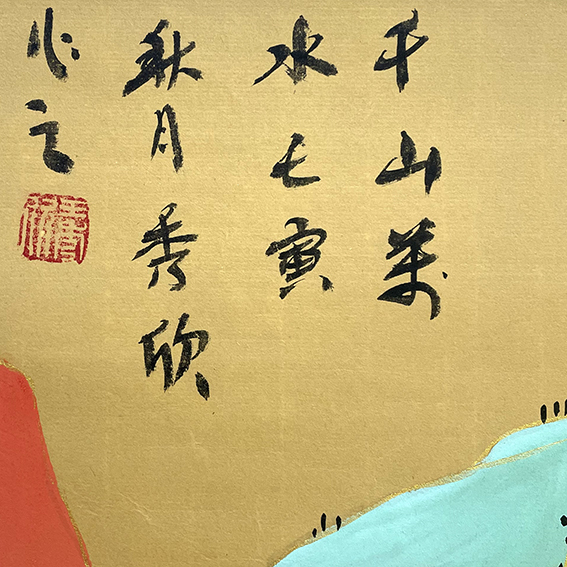 千山萬
水壬寅
秋月秀欣
作之